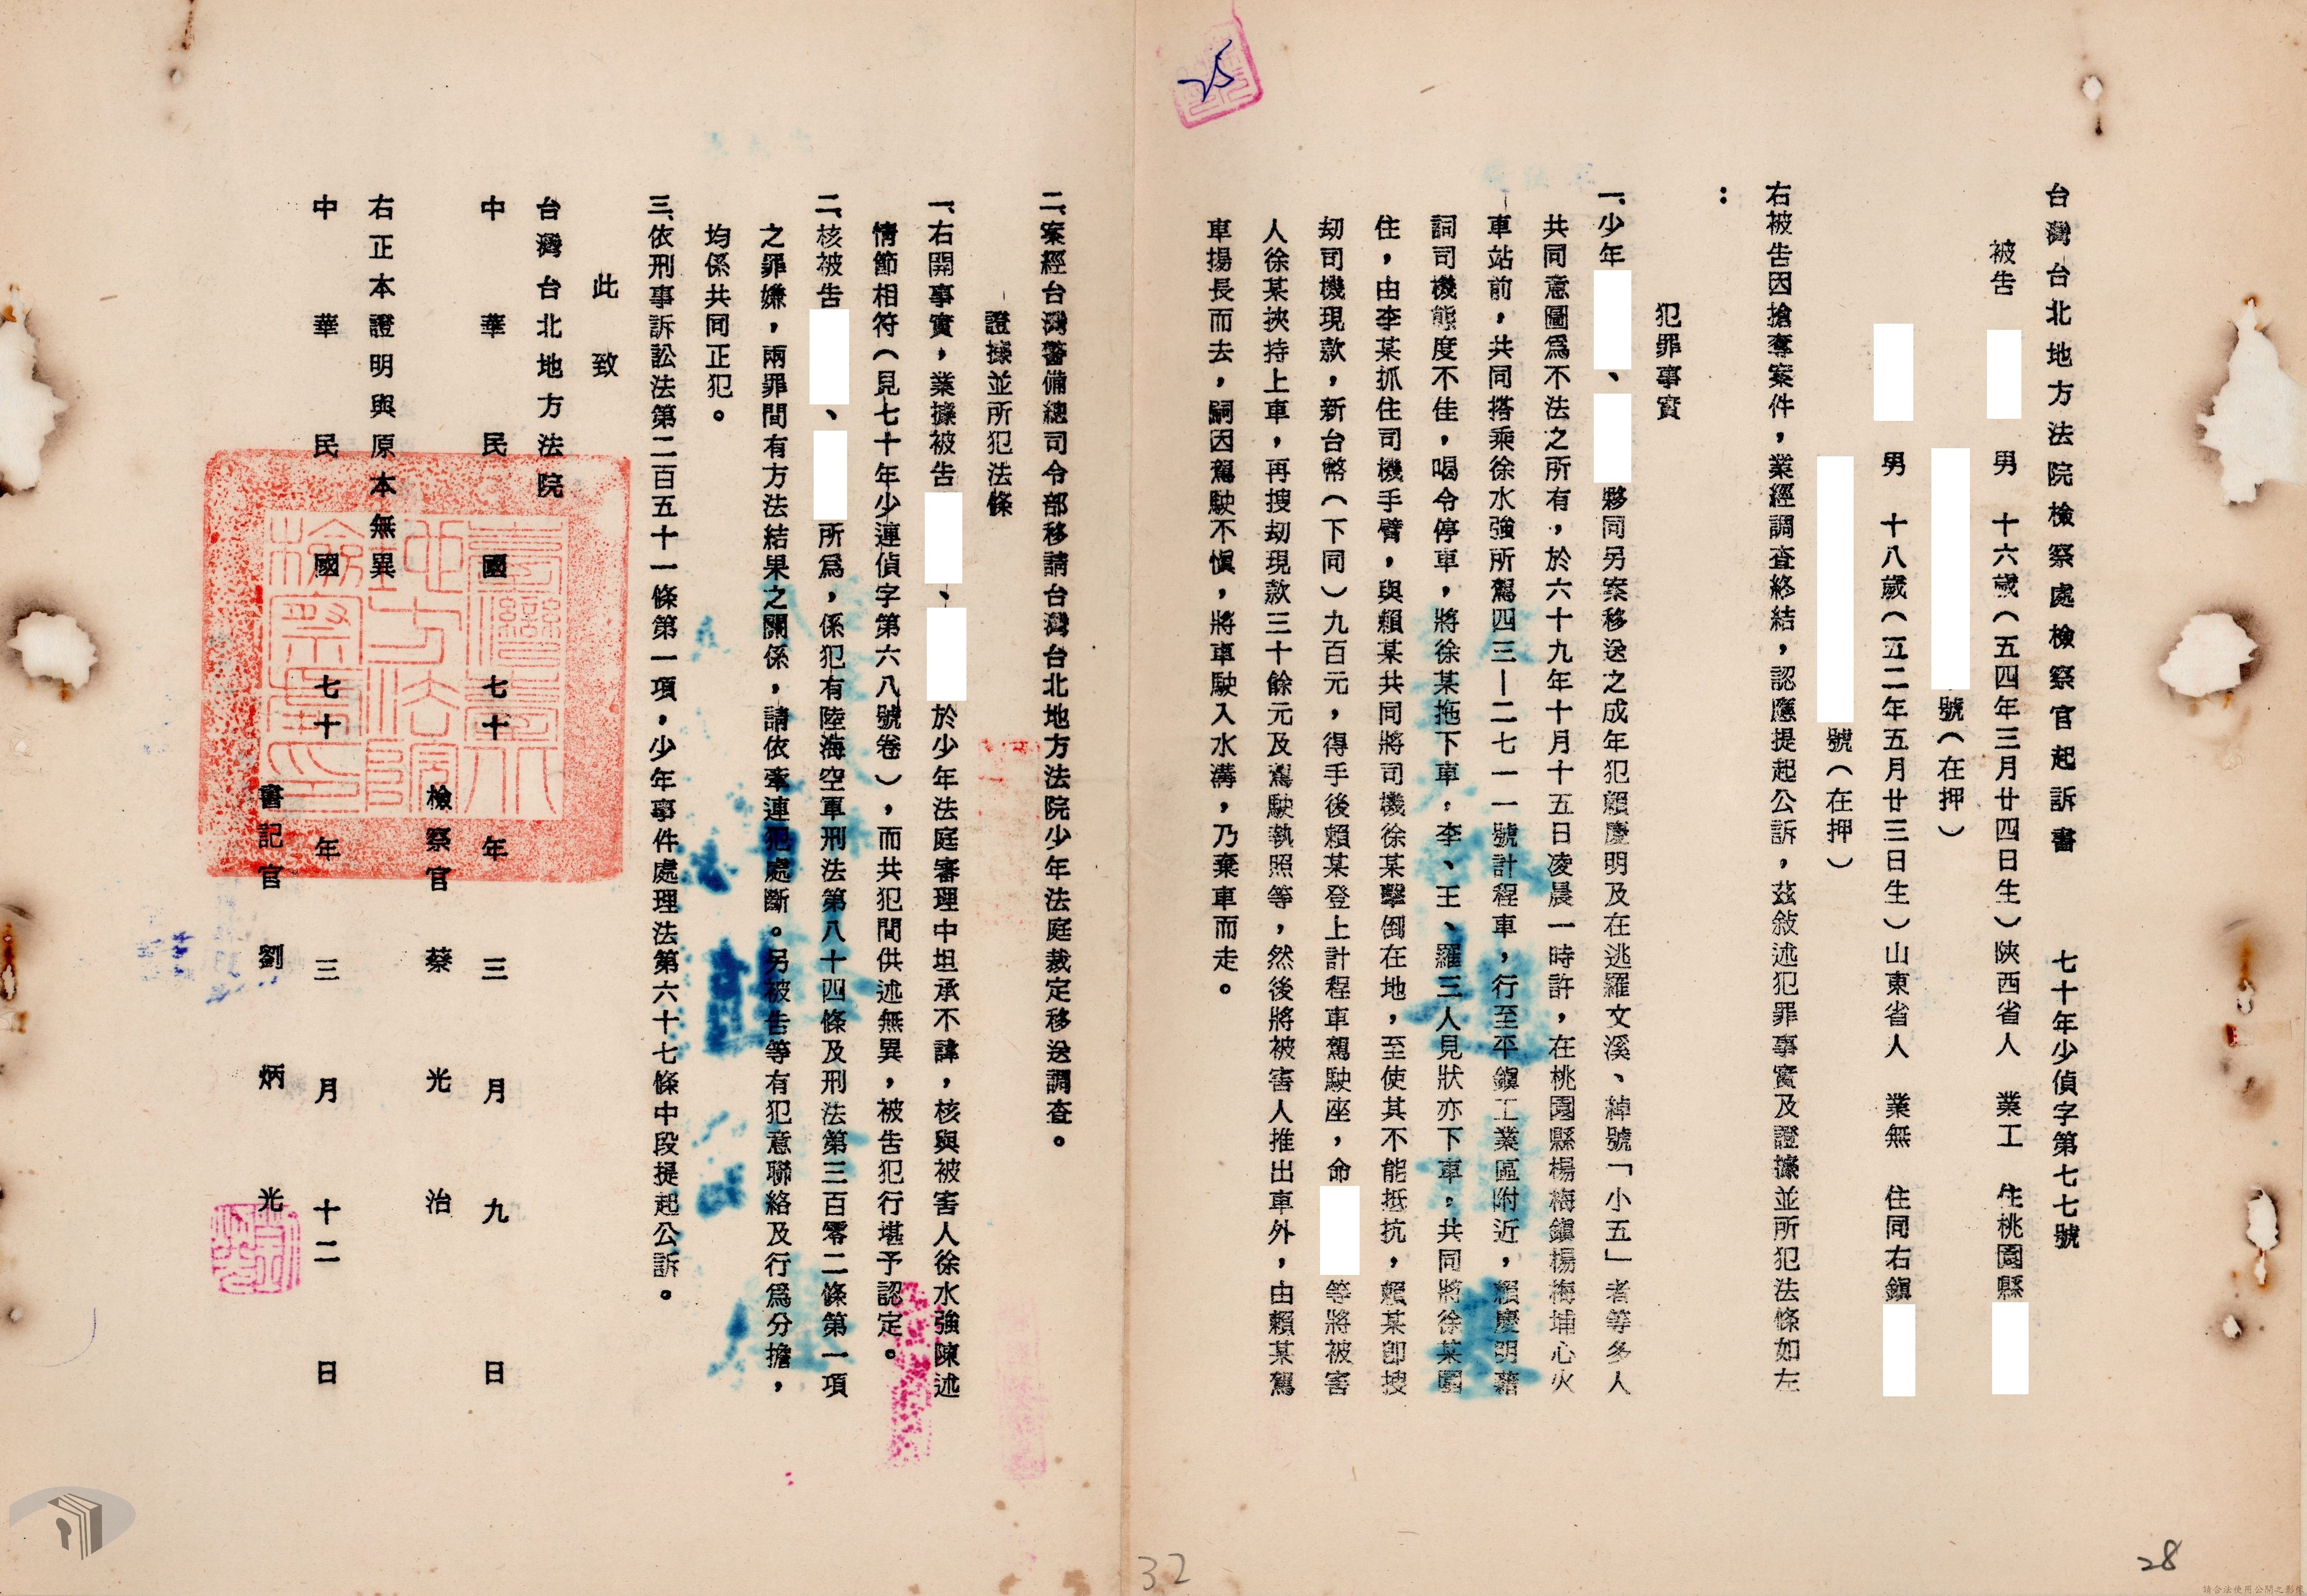 台灣台北地方法院檢察處檢察官起訴書　七十年少偵字第七七號
被告　男　十六歲（五四年三月廿四日生）陝西省人　業工　住桃園縣
號（在押）
男　十八歲（五二年五月廿三日生）山東省人　業無　住同右鎮
號（在押）
右被告因搶奪案件，業經調查終結，認應提起公訴，茲敘述犯罪事實及證據並所犯法條如左
：
犯罪事實
一、少年、夥同另案移送之成年犯賴慶明及在逃羅文溪、綽號「小五」者等多人
共同意圖爲不法之所有，於六十九年十月十五日凌晨一時許，在桃園縣楊梅鎮楊梅埔心火
車站前，共同搭乘徐水強所駕四三－二七一一號計程車，行至平鎮工業區附近，賴慶明藉
詞司機態度不佳，喝令停車，將徐某拖下車，李、王、羅三人見狀亦下車，共同將徐某圍
住，由李某抓住司機手臂，與賴某共同將司機徐某擊倒在地，至使其不能抵抗，賴某卽搜
刧司機現款，新台幣（下同）九百元，得手後賴某登上計程車駕駛座，命等將被害
人徐某挾持上車，再搜刧現款三十餘元及駕駛執照等，然後將被害人推出車外，由賴某駕
車揚長而去，嗣因駕駛不愼，將車駛入水溝，乃棄車而走。
二、案經台灣警備總司令部移請台灣台北地方法院少年法庭裁定移送調查。
證據並所犯法條
一、右開事實，業據被告、於少年法庭審理中坦承不諱，核與被害人徐水強陳述
情節相符（見七十年少連偵字第六八號卷），而共犯間供述無異，被告犯行堪予認定。
二、核被告、所爲，係犯有陸海空軍刑法第八十四條及刑法第三百零二條第一項
之罪嫌，兩罪間有方法結果之關係，請依牽連犯處斷。另被告等有犯意聯絡及行爲分擔，
均係共同正犯。
三、依刑事訴訟法第二百五十一條第一項，少年事件處理法第六十七條中段提起公訴。
此致
台灣台北地方法院
中華民國七十年三月九日
檢察官　蔡光治
右正本證明與原本無異
中華民國七十年三月十二日
書記官　劉炳光
臺灣臺北地方法院檢察處印
25
32
28
請合法使用公開之影像